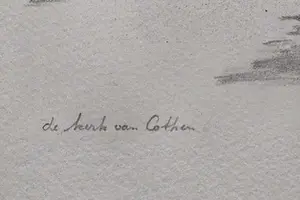 de kerk van Cothen